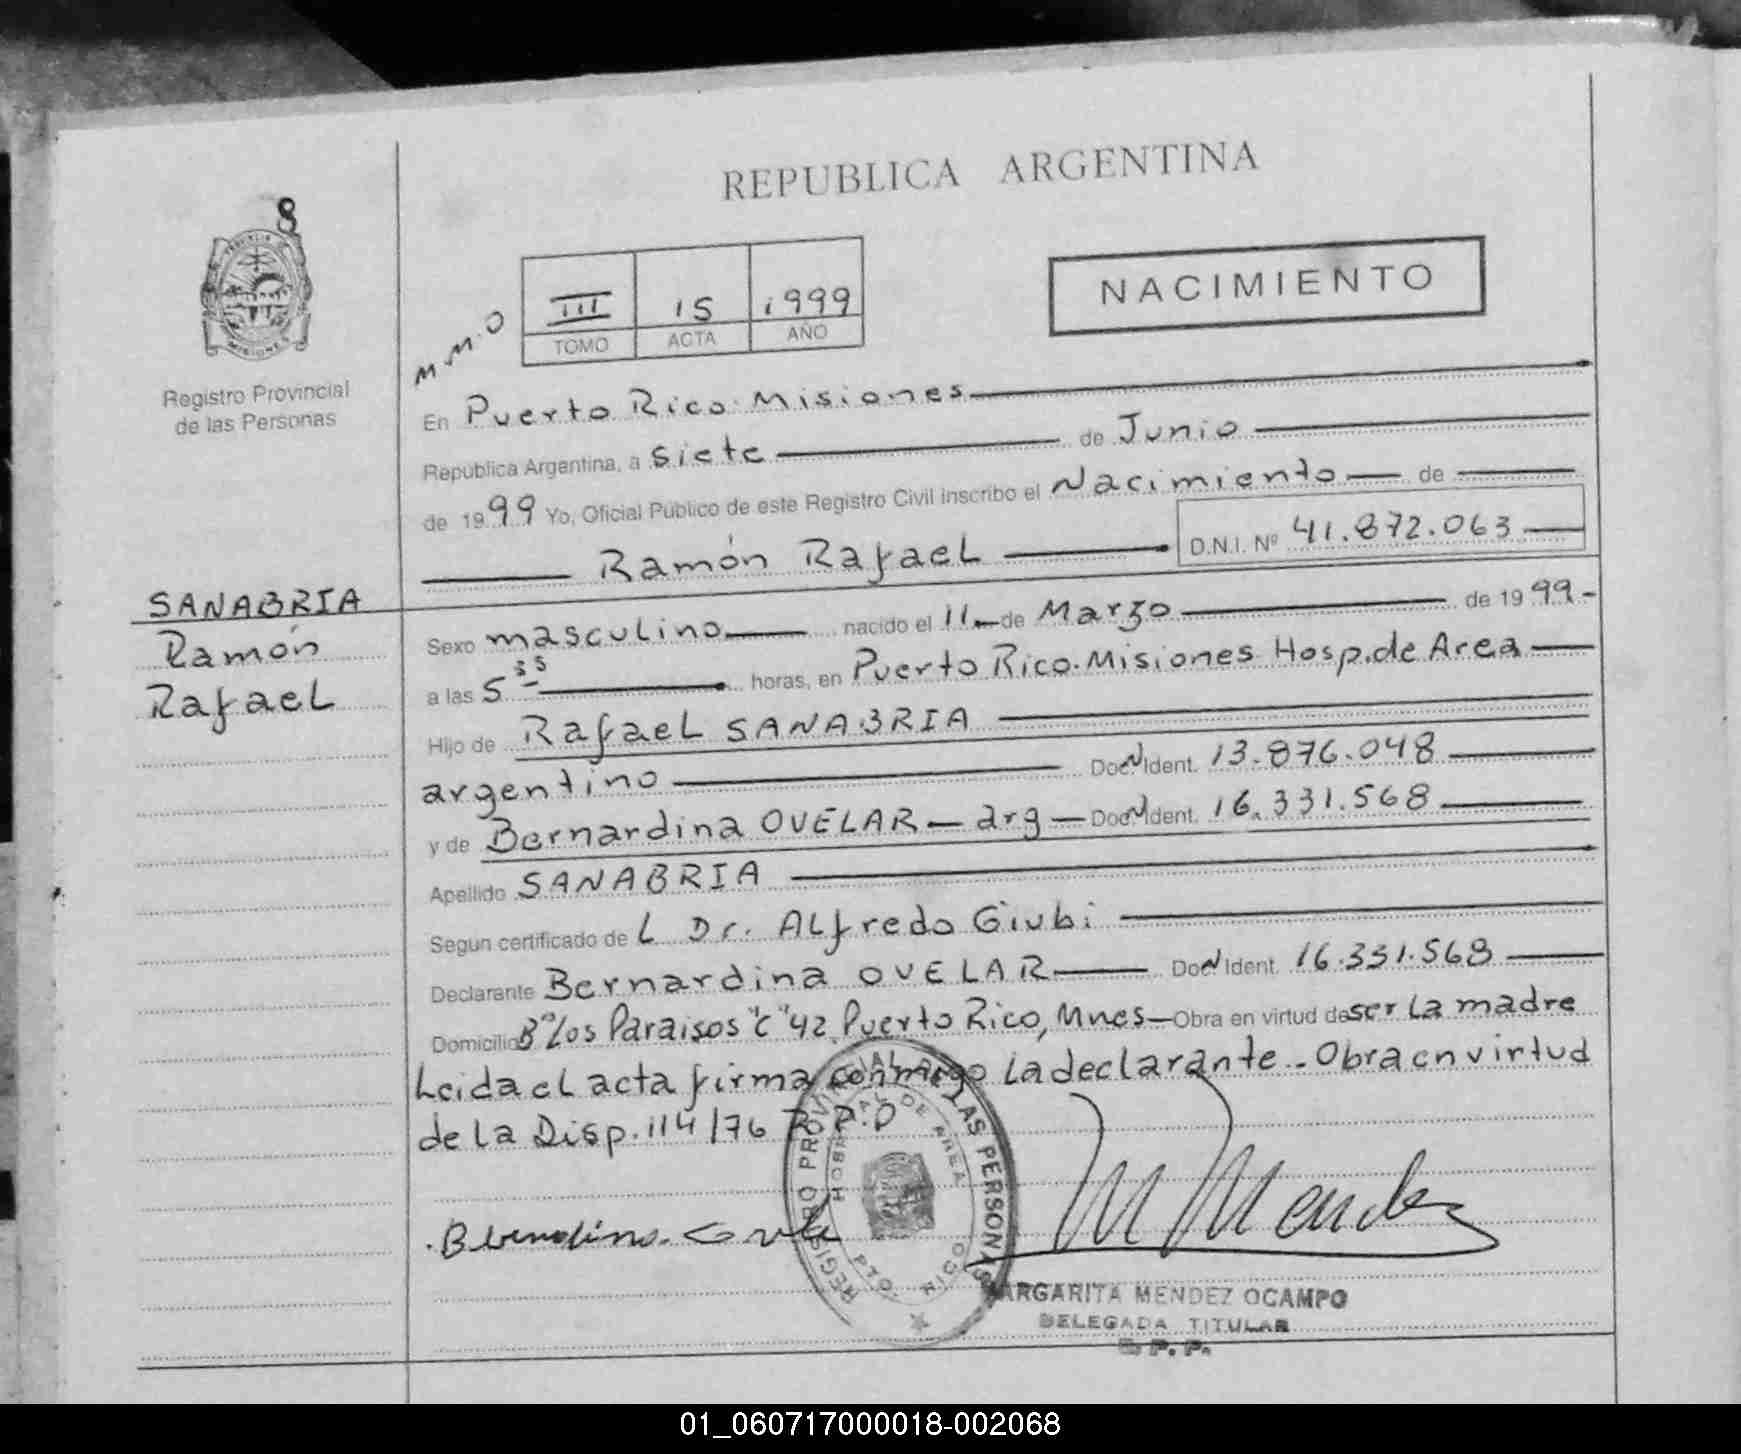 REPUBLICA ARGENTINA
8
PROVINCIA DE
MISIONES
Registro Provincial
de las Personas
M.M.O
III 15 1999
TOMO ACTA AÑO
NACIMIENTO
En Puerto Rico. Misiones
República Argentina, a siete de Junio
de 1999 Yo, Oficial Público de este Registro Civil inscribo el Nacimiento de
Ramón Rafael D.N.I. Nº 41.872.063
SANABRIA
Ramón
Rafael
Sexo masculino nacido el 11 de Marzo de 1999-
a las 5 35 horas, en Puerto Rico. Misiones Hosp. de Area
Hijo de Rafael SANABRIA
argentino Doc. N Ident. 13.876.048
y de Bernardina OVELAR - arg - Doc. N Ident. 16.331.568
Apellido SANABRIA
Segun certificado de L Dr. Alfredo Giubi
Declarante Bernardina OVELAR Doc. N Ident. 16.331.568
Domicilio Bº Los Paraisos "C" 42 Puerto Rico, Mnes - Obra en virtud de ser La madre
Leida el acta firma conmigo La declarante.- Obra en virtud
de la Disp. 114/76 R.P.P
REGISTRO PROVINCIAL DE LAS PERSONAS
HOSPITAL DE AREA
PTO RICO
M Mendez
MARGARITA MENDEZ OCAMPO
DELEGADA TITULAR
R.P.P.
01_060717000018-002068